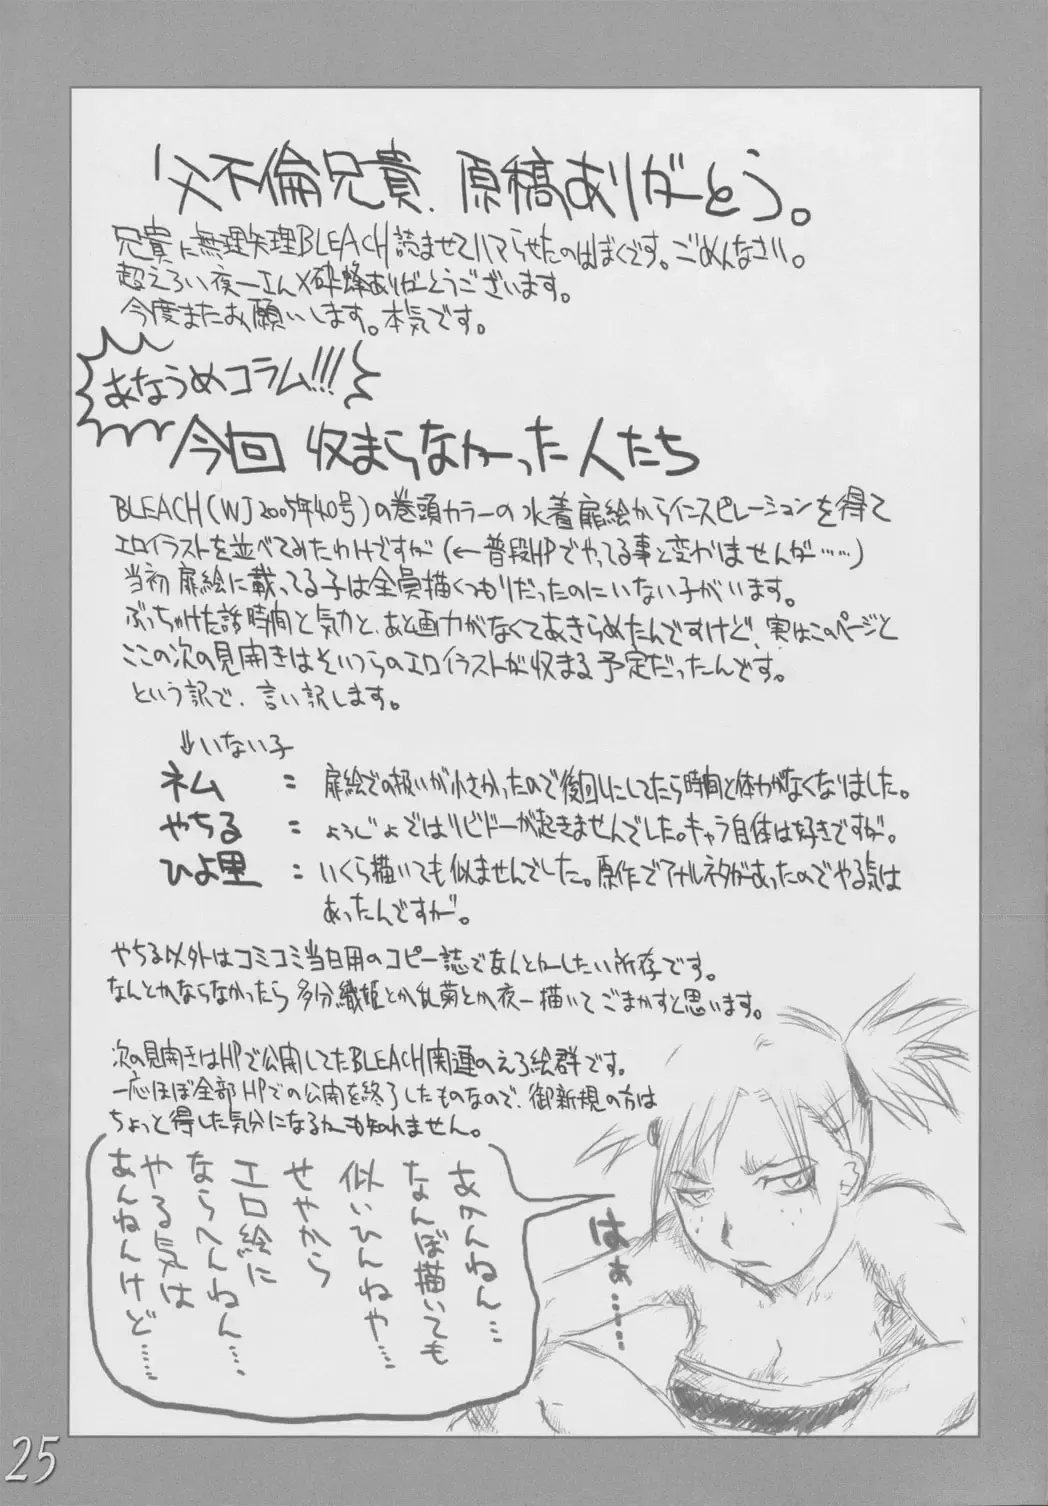 父不倫兄貴、原稿ありがとう。
兄貴に無理矢理BLEACH読ませてハマらせたのはぼくです。ごめんなさい。
超えろい夜一さん×砕蜂ありがとうございます。
今度またお願いします。本気です。
あなうめコラム!!!
今回 収まらなかった人たち
BLEACH(WJ2005年40号)の巻頭カラーの水着扉絵からインスピレーションを得て
エロイラストを並べてみたわけですが(←普段HPでやってる事と変わりませんが……)
当初扉絵に載ってる子は全員描くつもりだったのにいない子がいます。
ぶっちゃけた話時間と気力と、あと画力がなくてあきらめたんですけど、実はこのページと
ここの次の見開きはそいつらのエロイラストが収まる予定だったんです。
という訳で、言い訳します。
↓いない子
ネム : 扉絵での扱いが小さかったので後回しにしてたら時間と体力がなくなりました。
やちる : ようじょではリビドーが起きませんでした。キャラ自体は好きですが。
ひよ里 : いくら描いても似ませんでした。原作でアナルネタがあったのでやる気は
あったんですが。
やちる以外はコミコミ当日用のコピー誌でなんとかしたい所存です。
なんとかならなかったら多分織姫とか乱菊とか夜一描いてごまかすと思います。
次の見開きはHPで公開してたBLEACH関連のえろ絵群です。
一応ほぼ全部HPでの公開を終了したものなので、御新規の方は
ちょっと得した気分になるかも知れません。
あかんねん…
なんぼ描いても
似いひんねや…
せやから
エロ絵に
ならへんねん…
やる気は
あんねんけど……
はぁ……
25